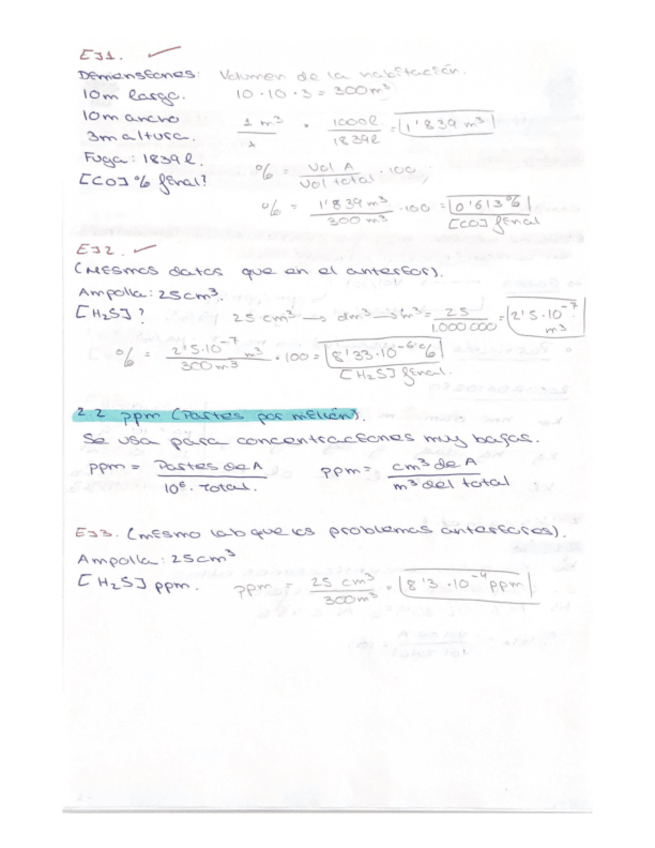 EJ1. ✓
Dimensiones: Volumen de la habitación.
10m largo. 10·10·3 = 300m³
10m ancho
3m altura. 1 m³/x · 1000l/1839l = 1'839 m³
Fuga: 1839l.
[CO] % final? % = Vol A/Vol total · 100
% = 1'839 m³/300 m³ · 100 = 0'613% [CO] final
EJ2. ✓
(Mismos datos que en el anterior).
Ampolla: 25cm³.
[H₂S]? 25 cm³ → dm³ → m³ = 25/1.000000 = 2'5·10⁻⁷ m³
% = 2'5·10⁻⁷ m³/300 m³ · 100 = 8'33·10⁻⁶% [H₂S] final.
2.2 ppm (Partes por millón).
Se usa para concentraciones muy bajas.
ppm = Partes de A/10⁶. Total. ppm = cm³ de A/m³ del total
EJ3. (mismo lab que los problemas anteriores).
Ampolla: 25cm³
[H₂S] ppm. ppm = 25 cm³/300m³ = 8'3·10⁻⁴ ppm